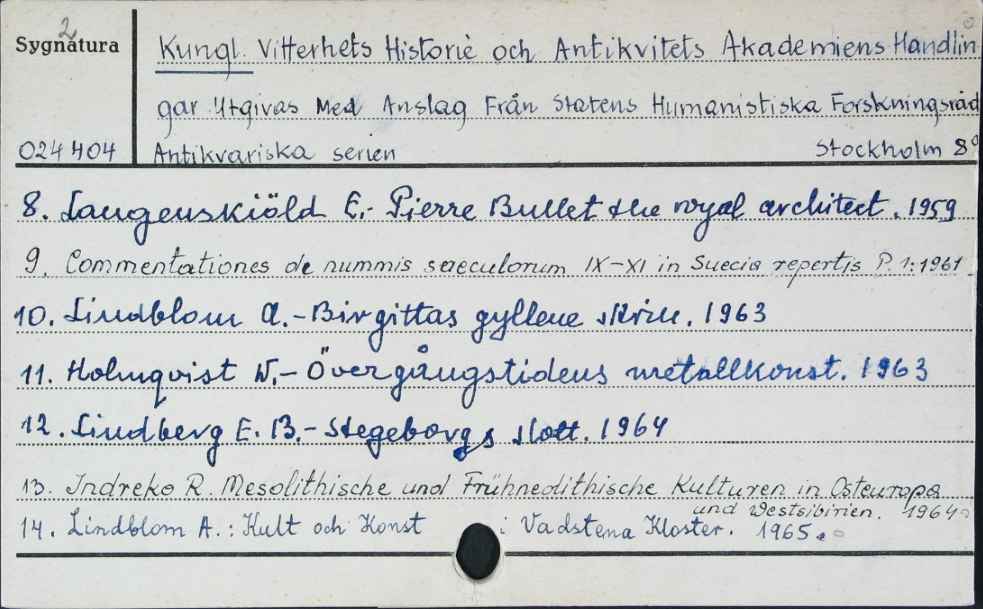 2
Sygnatura
Kungl. Vitterhets Historie och Antikvitets Akademiens Handlin
gar Utgivas Med Anslag Från Statens Humanistiska Forskningsråd
024404 Antikvariska serien Stockholm 8°
8. Langenskiöld E.- Pierre Bullet the royal architect. 1959
9. Commentationes de nummis saeculorum IX-XI in Suecia repertis P. 1: 1961
10. Lindblom A.- Birgittas gyllene skrin. 1963
11. Holmqvist W.- Övergångstidens metallkonst. 1963
12. Lindberg E. B.- Stegeborgs slott. 1964
13. Indreko R. Mesolithische und Frühneolithische Kulturen in Osteuropa
und Westsibirien. 1964
14. Lindblom A.: Kult och Konst i Vadstena Kloster. 1965.